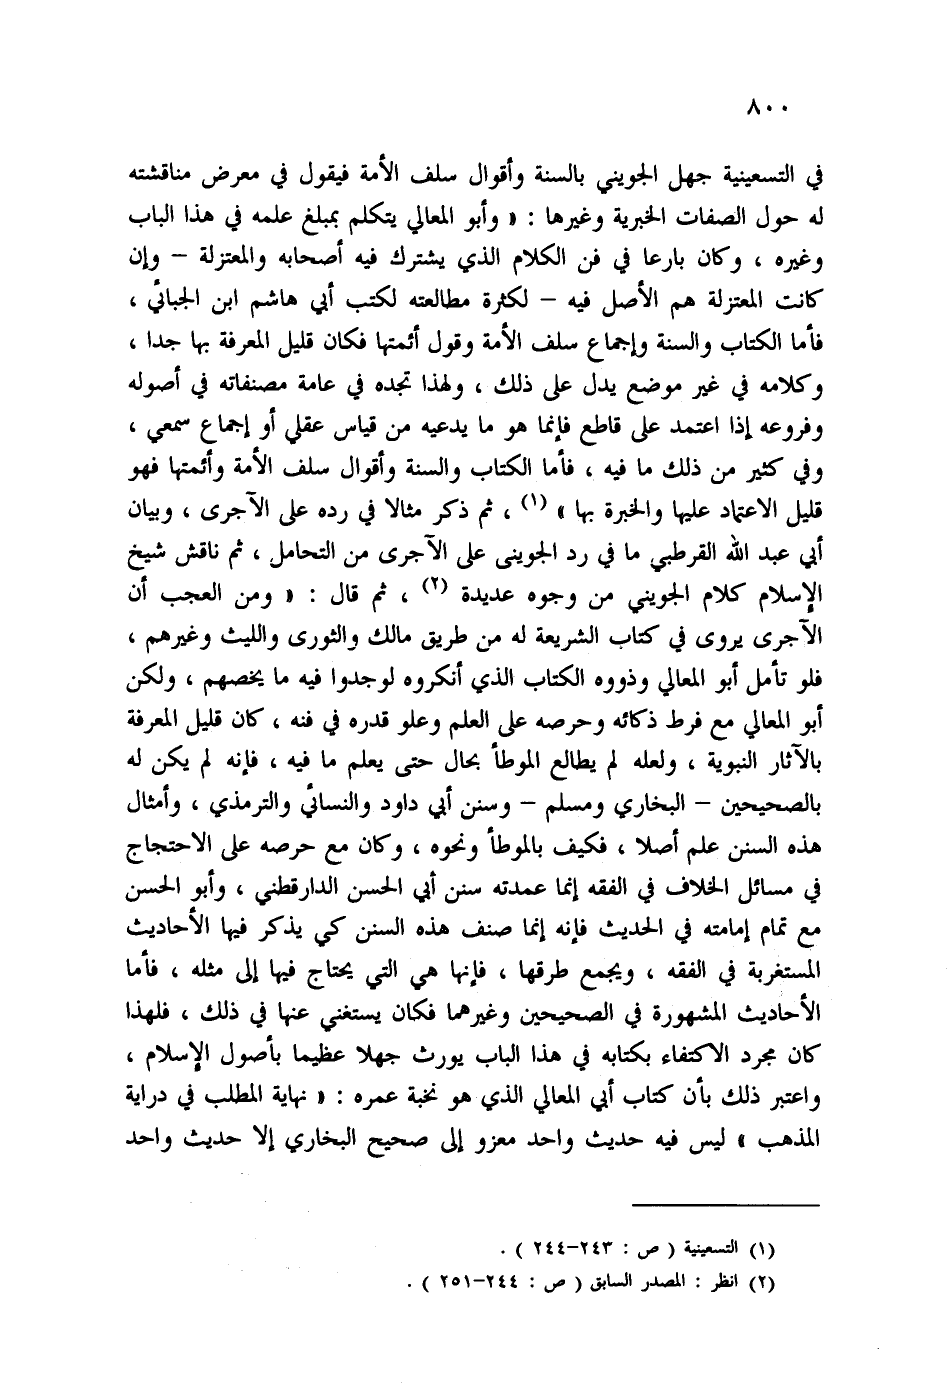 ٨٠٠
في التسعينية جهل الجويني بالسنة وأقوال سلف الأمة فيقول في معرض مناقشته
له حول الصفات الخبرية وغيرها : « وأبو المعالي يتكلم بمبلغ علمه في هذا الباب
وغيره ، وكان بارعا في فن الكلام الذي يشترك فيه أصحابه والمعتزلة – وإن
كانت المعتزلة هم الأصل فيه – لكثرة مطالعته لكتب أبي هاشم ابن الجبائي ،
فأما الكتاب والسنة وإجماع سلف الأمة وقول أئمتها فكان قليل المعرفة بها جدا ،
وكلامه في غير موضع يدل على ذلك ، ولهذا تجده في عامة مصنفاته في أصوله
وفروعه إذا اعتمد على قاطع فإنما هو ما يدعيه من قياس عقلي أو إجماع سمعي ،
وفي كثير من ذلك ما فيه ، فأما الكتاب والسنة وأقوال سلف الأمة وأئمتها فهو
قليل الاعتماد عليها والخبرة بها » (١) ، ثم ذكر مثالا في رده على الآجرى ، وبيان
أبي عبد الله القرطبي ما في رد الجوينى على الآجرى من التحامل ، ثم ناقش شيخ
الإسلام كلام الجويني من وجوه عديدة (٢) ، ثم قال : « ومن العجب أن
الآجرى يروى في كتاب الشريعة له من طريق مالك والثورى والليث وغيرهم ،
فلو تأمل أبو المعالي وذووه الكتاب الذي أنكروه لوجدوا فيه ما يخصهم ، ولكن
أبو المعالي مع فرط ذكائه وحرصه على العلم وعلو قدره في فنه ، كان قليل المعرفة
بالآثار النبوية ، ولعله لم يطالع الموطأ بحال حتى يعلم ما فيه ، فإنه لم يكن له
بالصحيحين – البخاري ومسلم – وسنن أبي داود والنسائي والترمذي ، وأمثال
هذه السنن علم أصلا ، فكيف بالموطأ ونحوه ، وكان مع حرصه على الاحتجاج
في مسائل الخلاف في الفقه إنما عمدته سنن أبي الحسن الدارقطني ، وأبو الحسن
مع تمام إمامته في الحديث فإنه إنما صنف هذه السنن كي يذكر فيها الأحاديث
المستغربة في الفقه ، ويجمع طرقها ، فإنها هي التي يحتاج فيها إلى مثله ، فأما
الأحاديث المشهورة في الصحيحين وغيرهما فكان يستغني عنها في ذلك ، فلهذا
كان مجرد الاكتفاء بكتابه في هذا الباب يورث جهلا عظيما بأصول الإسلام ،
واعتبر ذلك بأن كتاب أبي المعالي الذي هو نخبة عمره : « نهاية المطلب في دراية
المذهب » ليس فيه حديث واحد معزو إلى صحيح البخاري إلا حديث واحد
(١) التسعينية ( ص : ٢٤٣–٢٤٤ ) .
(٢) انظر : المصدر السابق ( ص : ٢٤٤–٢٥١ ) .